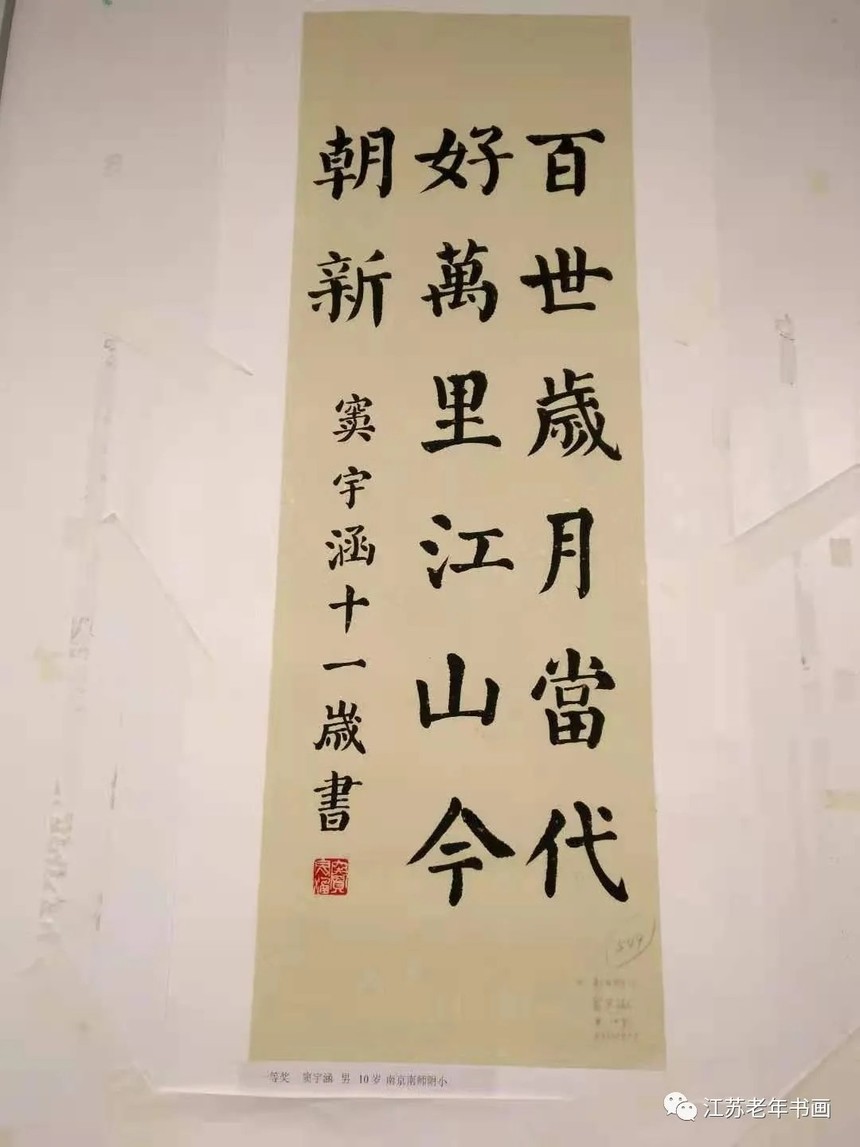 百世歲月當代
好萬里江山今
朝新
窦宇涵十一歲書
549
一等奖 窦宇涵 男 10岁 南京南师附小
江苏老年书画